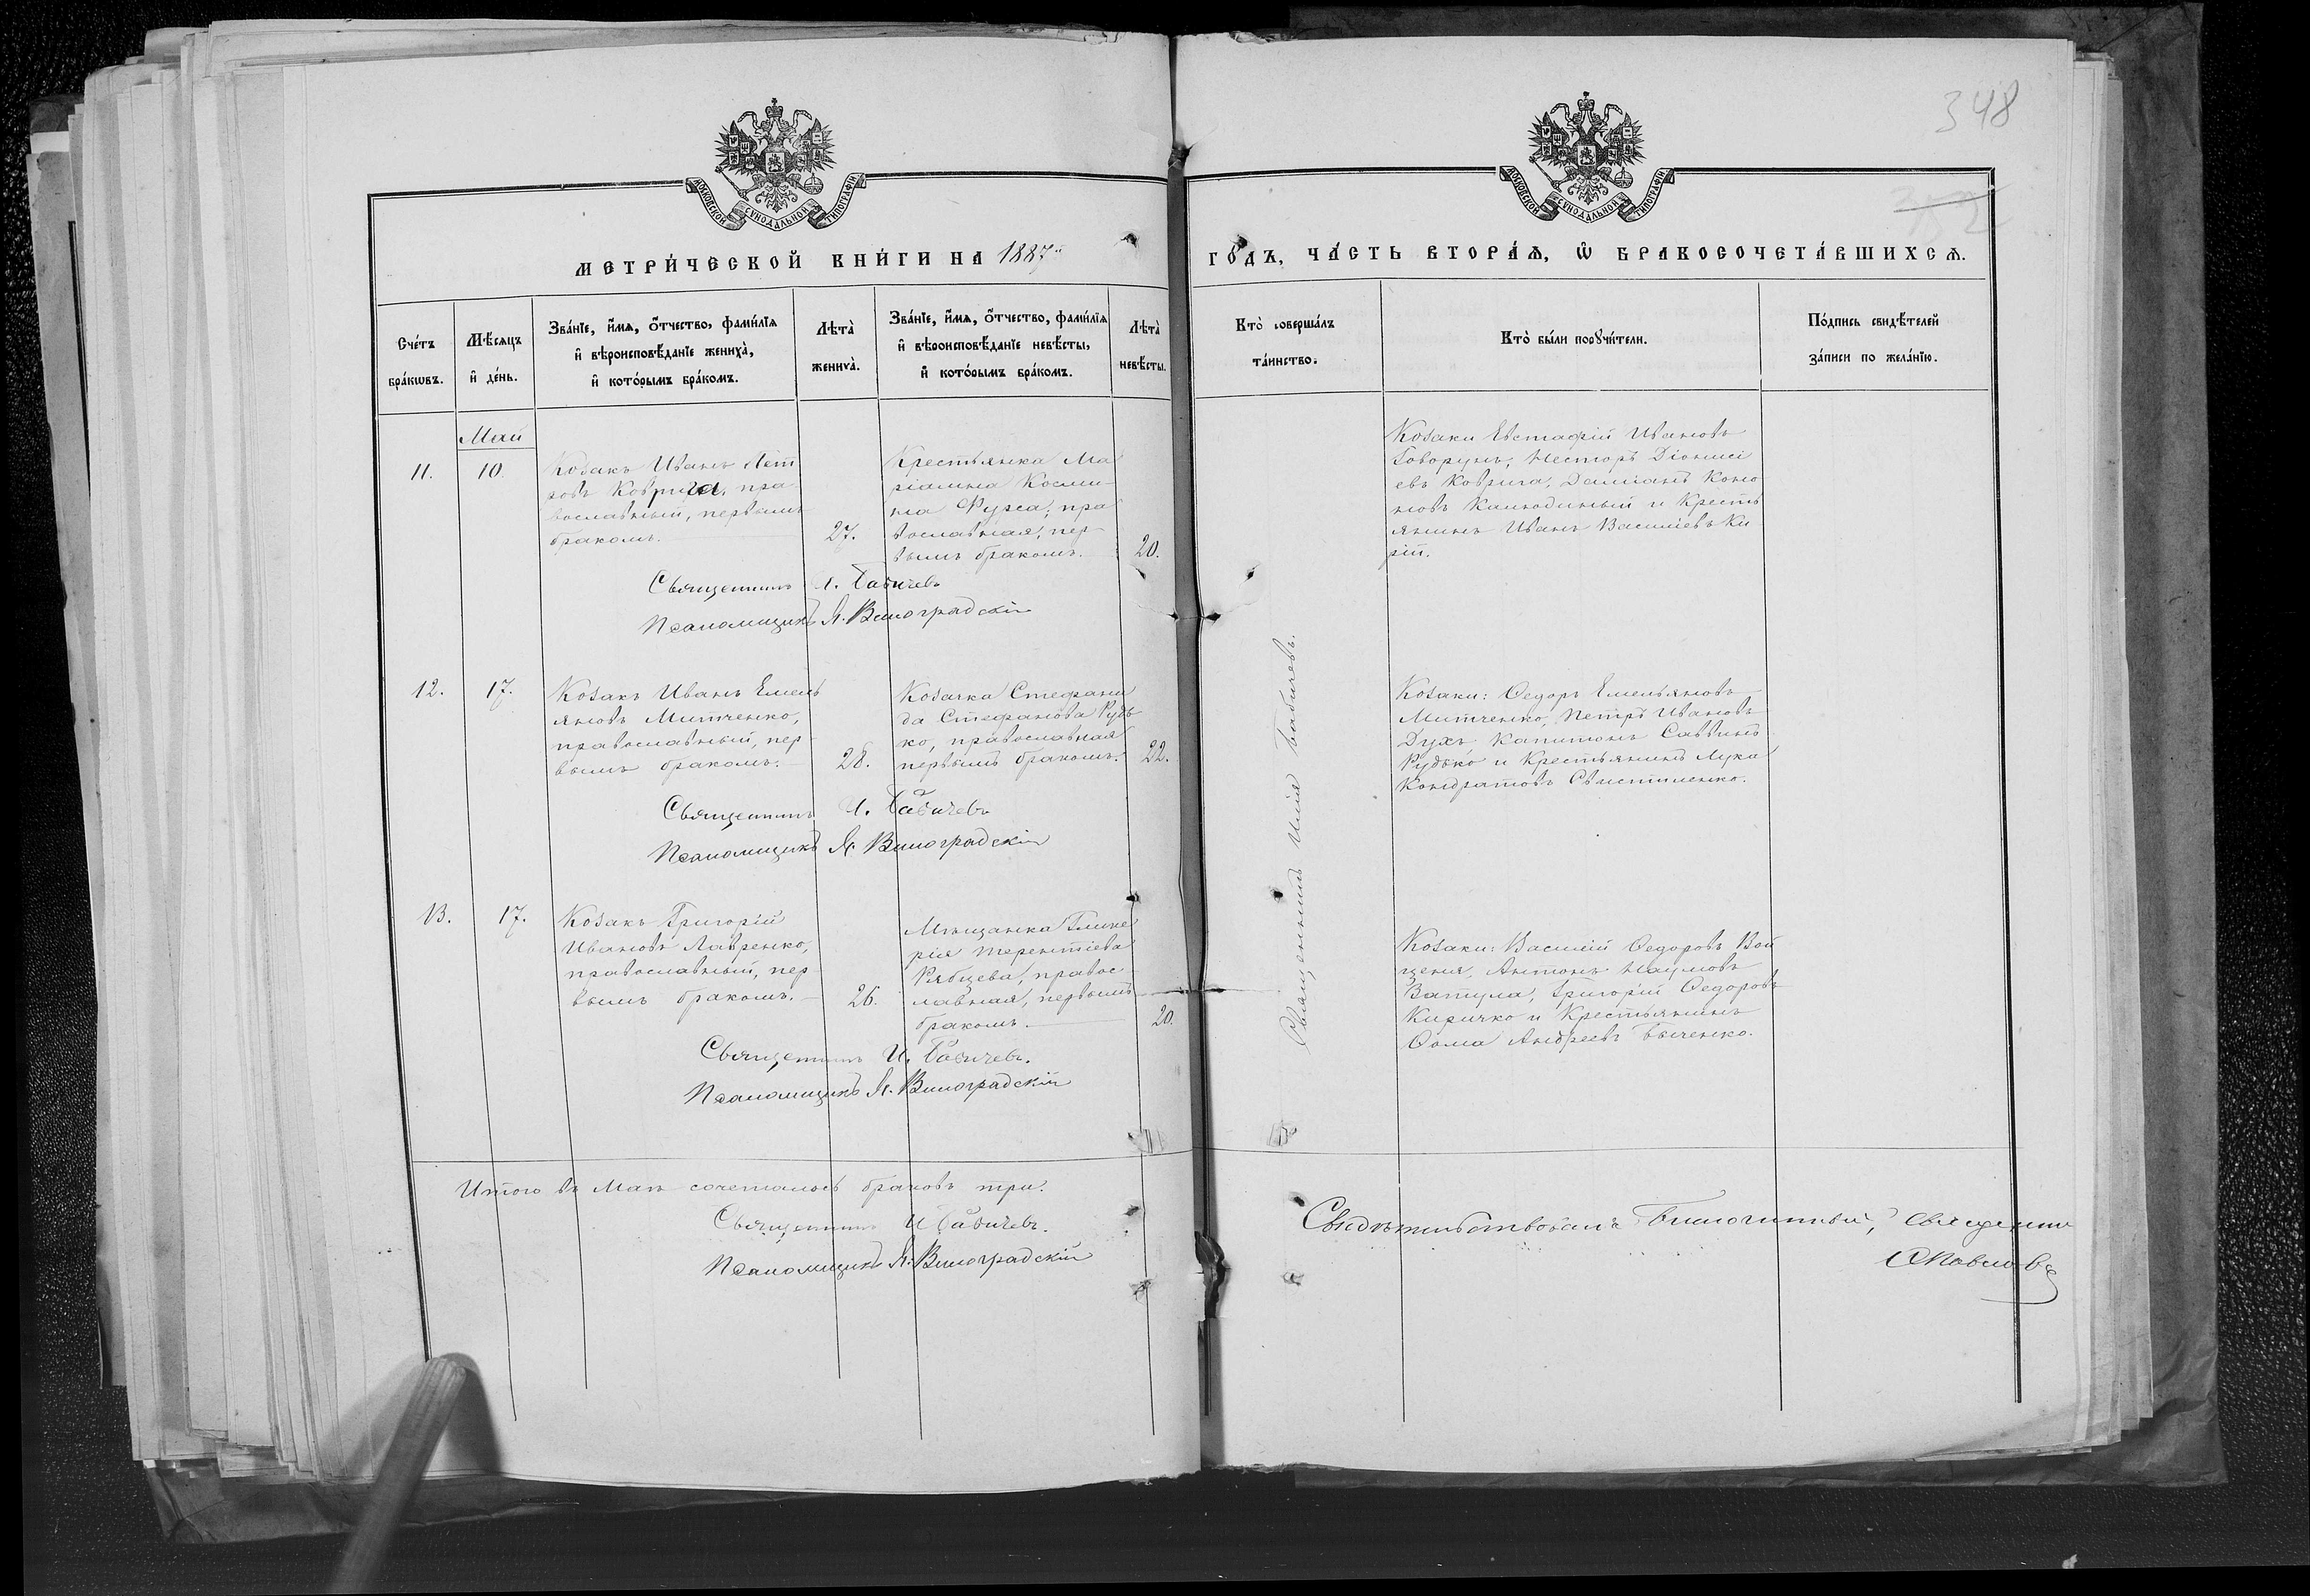 348
МОСКОВСКОЙ СѴНОДАЛЬНОЙ ТИПОГРАФІИ
МОСКОВСКОЙ СѴНОДАЛЬНОЙ ТИПОГРАФІИ
МЕТРИ́ЧЕСКОЙ КНИ́ГИ НА 1887й
ГО́ДЪ, ЧА́СТЬ ВТОРА́Ѧ, Ѡ БРАКОСОЧЕТА́ВШИХСѦ.
Сче́тъ бра́кѡвъ.
Мѣ́сяцъ и҆ де́нь.
Зва́нїе, и҆́мѧ, ѻ҆́тчество, фами́лїѧ
и҆ вѣроисповѣ́данїе жениха̀,
и҆ кото́рымъ бра́комъ.
Лѣта̀ жениха̀.
Зва́нїе, и҆́мѧ, ѻ҆́тчество, фами́лїѧ
и҆ вѣроисповѣ́данїе невѣ́сты,
и҆ кото́рымъ бра́комъ.
Лѣта̀ невѣ́сты.
Кто̀ соверша́лъ та́инство.
Кто̀ бы́ли порꙋчи́тели.
По́дпись свидѣ́телей
за́писи по жела́нїю.
Май
11.
10
Козакъ Иванъ Пет
ровъ Коврига, пра-
вославный, первымъ
бракомъ.
27.
Крестьянка Ма
ріамна Косми-
на Фурса, пра
вославная, пер-
вымъ бракомъ.
20.
Козаки Евстафій Ивановъ
Говорунъ, Несторъ Діонисі
евъ Коврига, Даміанъ Коно
новъ и Кресть
янинъ Иванъ Василіевъ Ки
рій.
Священникъ И. Бабичевъ
Псаломщикъ Я. Виноградскій
12.
17.
Козакъ Иванъ Емель
яновъ Митченко,
православный, пер-
вымъ бракомъ.
28.
Козачка Стефани
да Стефанова Рудь
ко, православная
первымъ бракомъ.
22.
Козаки: Ѳедоръ Емельяновъ
Митченко, Петръ Ивановъ
Духъ, Капитонъ Саввинъ
Рудько и Крестьянинъ Лука
Кондратовъ
Священникъ И. Бабичевъ
Псаломщикъ Я. Виноградскій
13.
17.
Козакъ Григорій
Ивановъ Лавренко,
православный, пер
вымъ бракомъ.
26.
Мѣщанка Глике
рія Терентіева
Рябцева, правос
лавная, первымъ
бракомъ.
20.
Козаки: Василій Ѳедоровъ Вой
Антонъ Наумовъ
Ватула, Григорій Ѳедоровъ
Киричко и Крестьянинъ
Ѳома Андреевъ Быченко.
Священникъ И. Бабичевъ.
Псаломщикъ Я. Виноградскій
Священникъ Илія Бабичевъ.
Итого въ Маѣ сочеталось браковъ три.
Священникъ И Бабичевъ.
Псаломщикъ Я. Виноградскій
Свидѣтельствовалъ Благочинный, священни
Павловъ